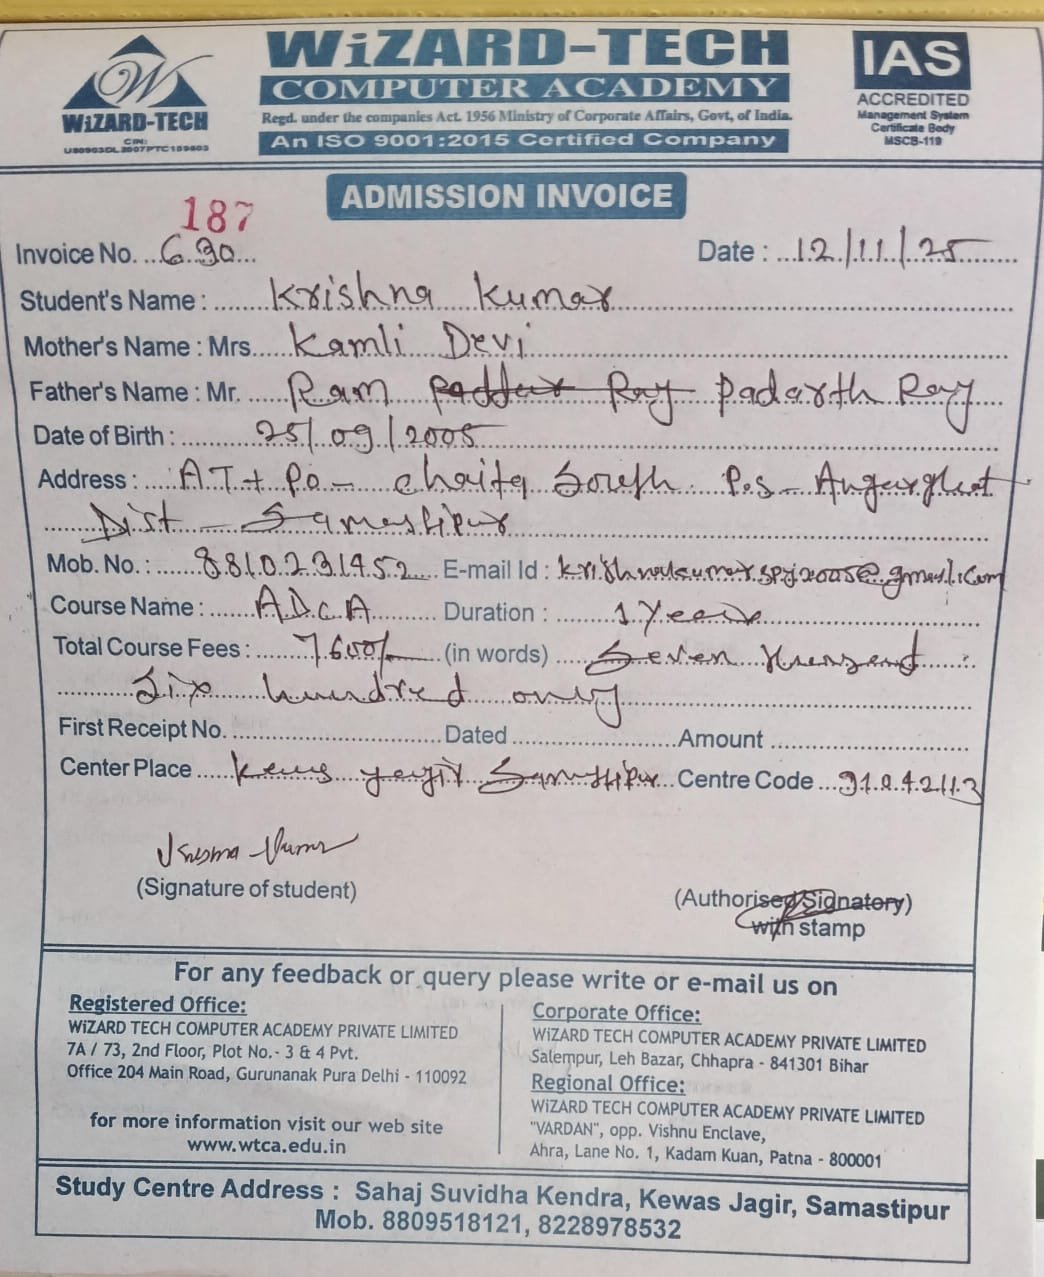 WiZARD-TECH
COMPUTER ACADEMY
Regd. under the companies Act. 1956 Ministry of Corporate Affairs, Govt, of India.
An ISO 9001:2015 Certified Company
W
WiZARD-TECH
CIN:
U80903DL2007PTC159803
IAS
ACCREDITED
Management System
Certificate Body
MSCB-119
ADMISSION INVOICE
187
Invoice No. 690 Date : 12/11/25
Student's Name : Krishna Kumar
Mother's Name : Mrs. Kamli Devi
Father's Name : Mr. Ram Ray Padarth Ray
Date of Birth : 25/09/2005
Address : AT+ Po - chaita South P.s - Angarghat
Dist - Samastipur
Mob. No. : 8810231452 E-mail Id : krishnakumarspj2005@gmail.com
Course Name : ADCA Duration : 1 Year
Total Course Fees : 7600/- (in words) Seven thousand
Six hundred only
First Receipt No. Dated Amount
Center Place Kews yagir Samastipur Centre Code 91042113
(Signature of student)
(Authorised Signatory)
with stamp
For any feedback or query please write or e-mail us on
Registered Office:
WiZARD TECH COMPUTER ACADEMY PRIVATE LIMITED
7A / 73, 2nd Floor, Plot No.- 3 & 4 Pvt.
Office 204 Main Road, Gurunanak Pura Delhi - 110092
for more information visit our web site
www.wtca.edu.in
Corporate Office:
WiZARD TECH COMPUTER ACADEMY PRIVATE LIMITED
Salempur, Leh Bazar, Chhapra - 841301 Bihar
Regional Office:
WiZARD TECH COMPUTER ACADEMY PRIVATE LIMITED
"VARDAN", opp. Vishnu Enclave,
Ahra, Lane No. 1, Kadam Kuan, Patna - 800001
Study Centre Address : Sahaj Suvidha Kendra, Kewas Jagir, Samastipur
Mob. 8809518121, 8228978532